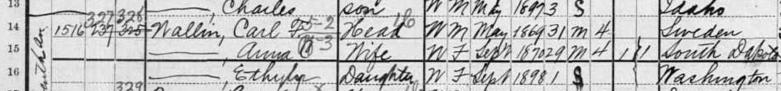 13 — Charles son W M May 1897 3 S Idaho
14 1516 327 328 237 325 Wallin, Carl F 5-2 Head W M May 1869 31 M 4 Sweden
15 —, Anna 3 Wife W F Sept 1870 29 M 4 1 1 South Dakota
16 — Ethylyn Daughter W F Sept 1898 1 S Washington
329